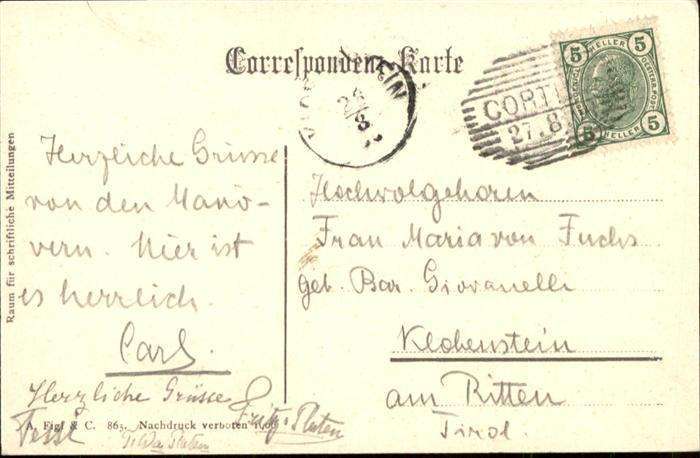 Correspondenz-Karte
5 HELLER 5
5 HELLER 5
CORTI
27.8
EIN
Raum für schriftliche Mitteilungen
Herzliche Grüsse
von den Manö-
vern. Hier ist
es herrlich.
Carl.
Herzliche Grüsse
Fritz Platen
Hochwolgeboren
Frau Maria von Fuchs
geb. Bar. Giovanelli
Klobenstein
am Ritten
Tirol.
A. Figl & C. 863. Nachdruck verboten